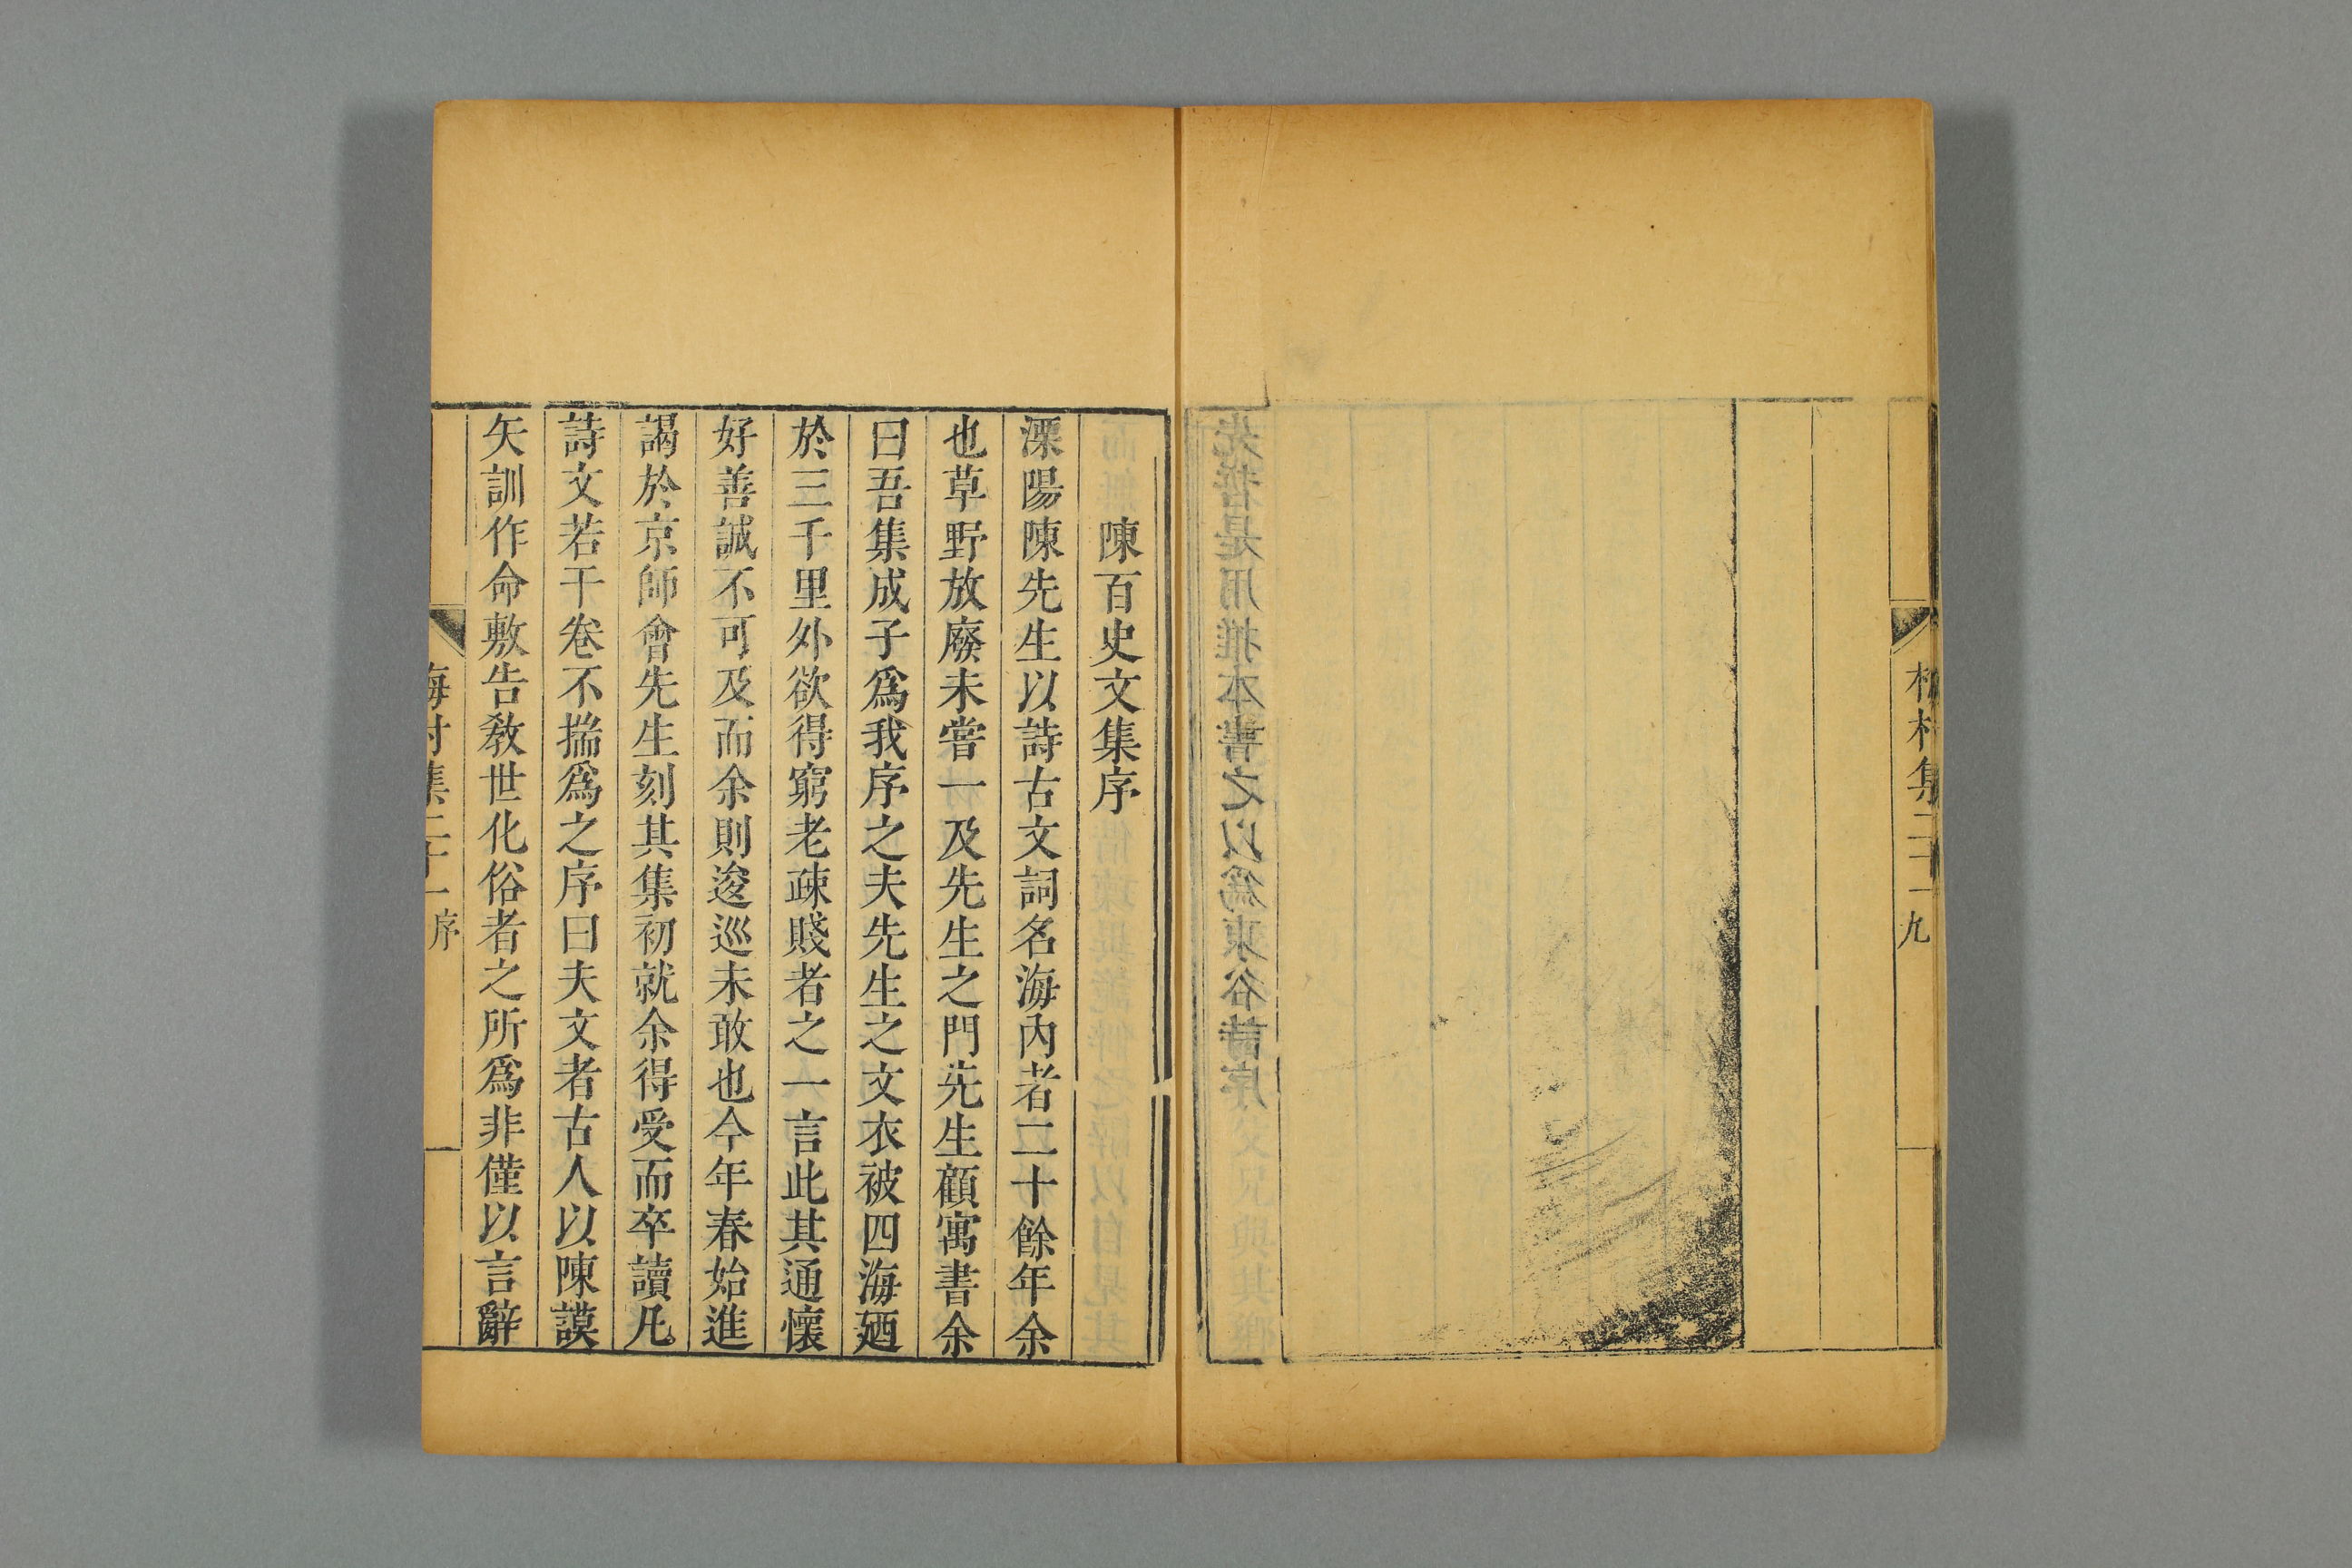 梅村集二十一 九
先哲是用推本書之以爲東谷詩序
陳百史文集序
溧陽陳先生以詩古文詞名海內者二十餘年余
也草野放廢未嘗一及先生之門先生顧寓書余
曰吾集成子爲我序之夫先生之文衣被四海廼
於三千里外欲得窮老疎賤者之一言此其通懷
好善誠不可及而余則逡巡未敢也今年春始進
謁於京師會先生刻其集初就余得受而卒讀凡
詩文若干卷不揣爲之序曰夫文者古人以陳謨
矢訓作命敷告敎世化俗者之所爲非僅以言辭
梅村集二十一 序 一